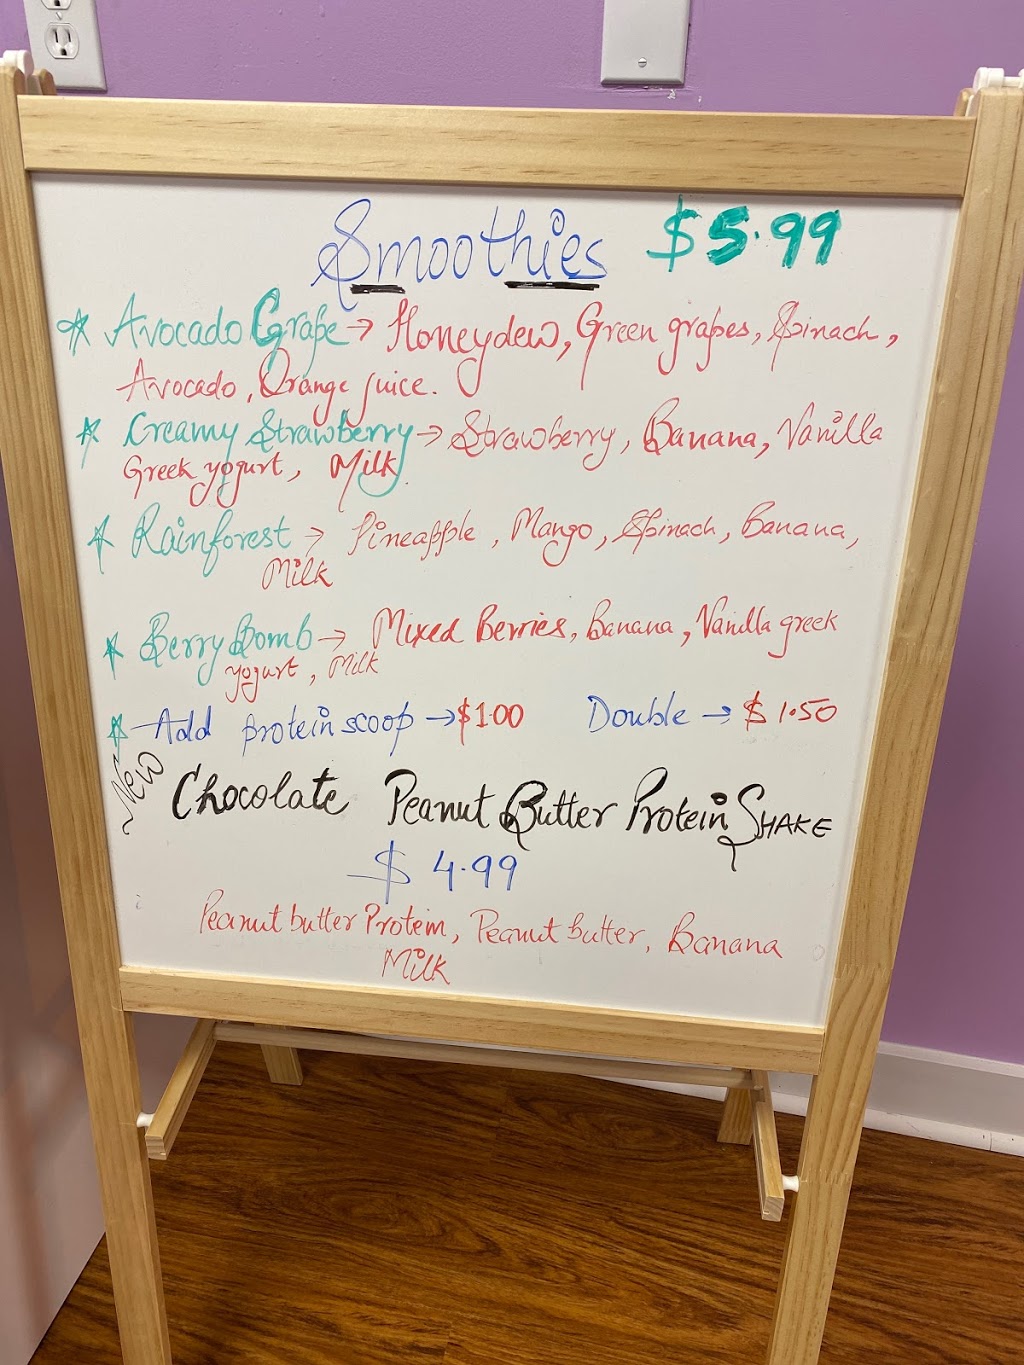 Smoothies $5.99
Avocado Grape → Honeydew, Green grapes, Spinach,
Avocado, Orange juice.
Creamy Strawberry → Strawberry, Banana, Vanilla
Greek yogurt, Milk
Rainforest → Pineapple, Mango, Spinach, Banana,
Milk
Berry Bomb → Mixed Berries, Banana, Vanilla greek
yogurt, Milk
Add protein scoop → $1.00 Double → $1.50
~New
Chocolate Peanut Butter Protein SHAKE
$4.99
Peanut butter Protein, Peanut butter, Banana
Milk